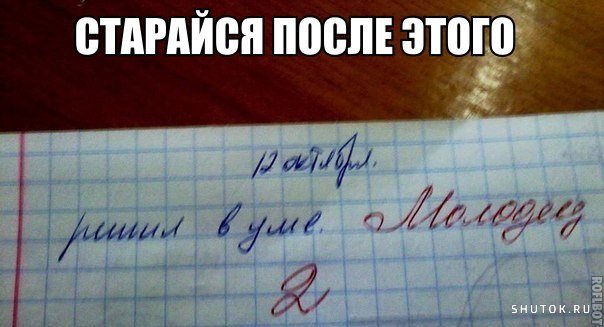 СТАРАЙСЯ ПОСЛЕ ЭТОГО
12 октября.
решил в уме. Молодец
2
SHUTOK.RU
ROFLBOY